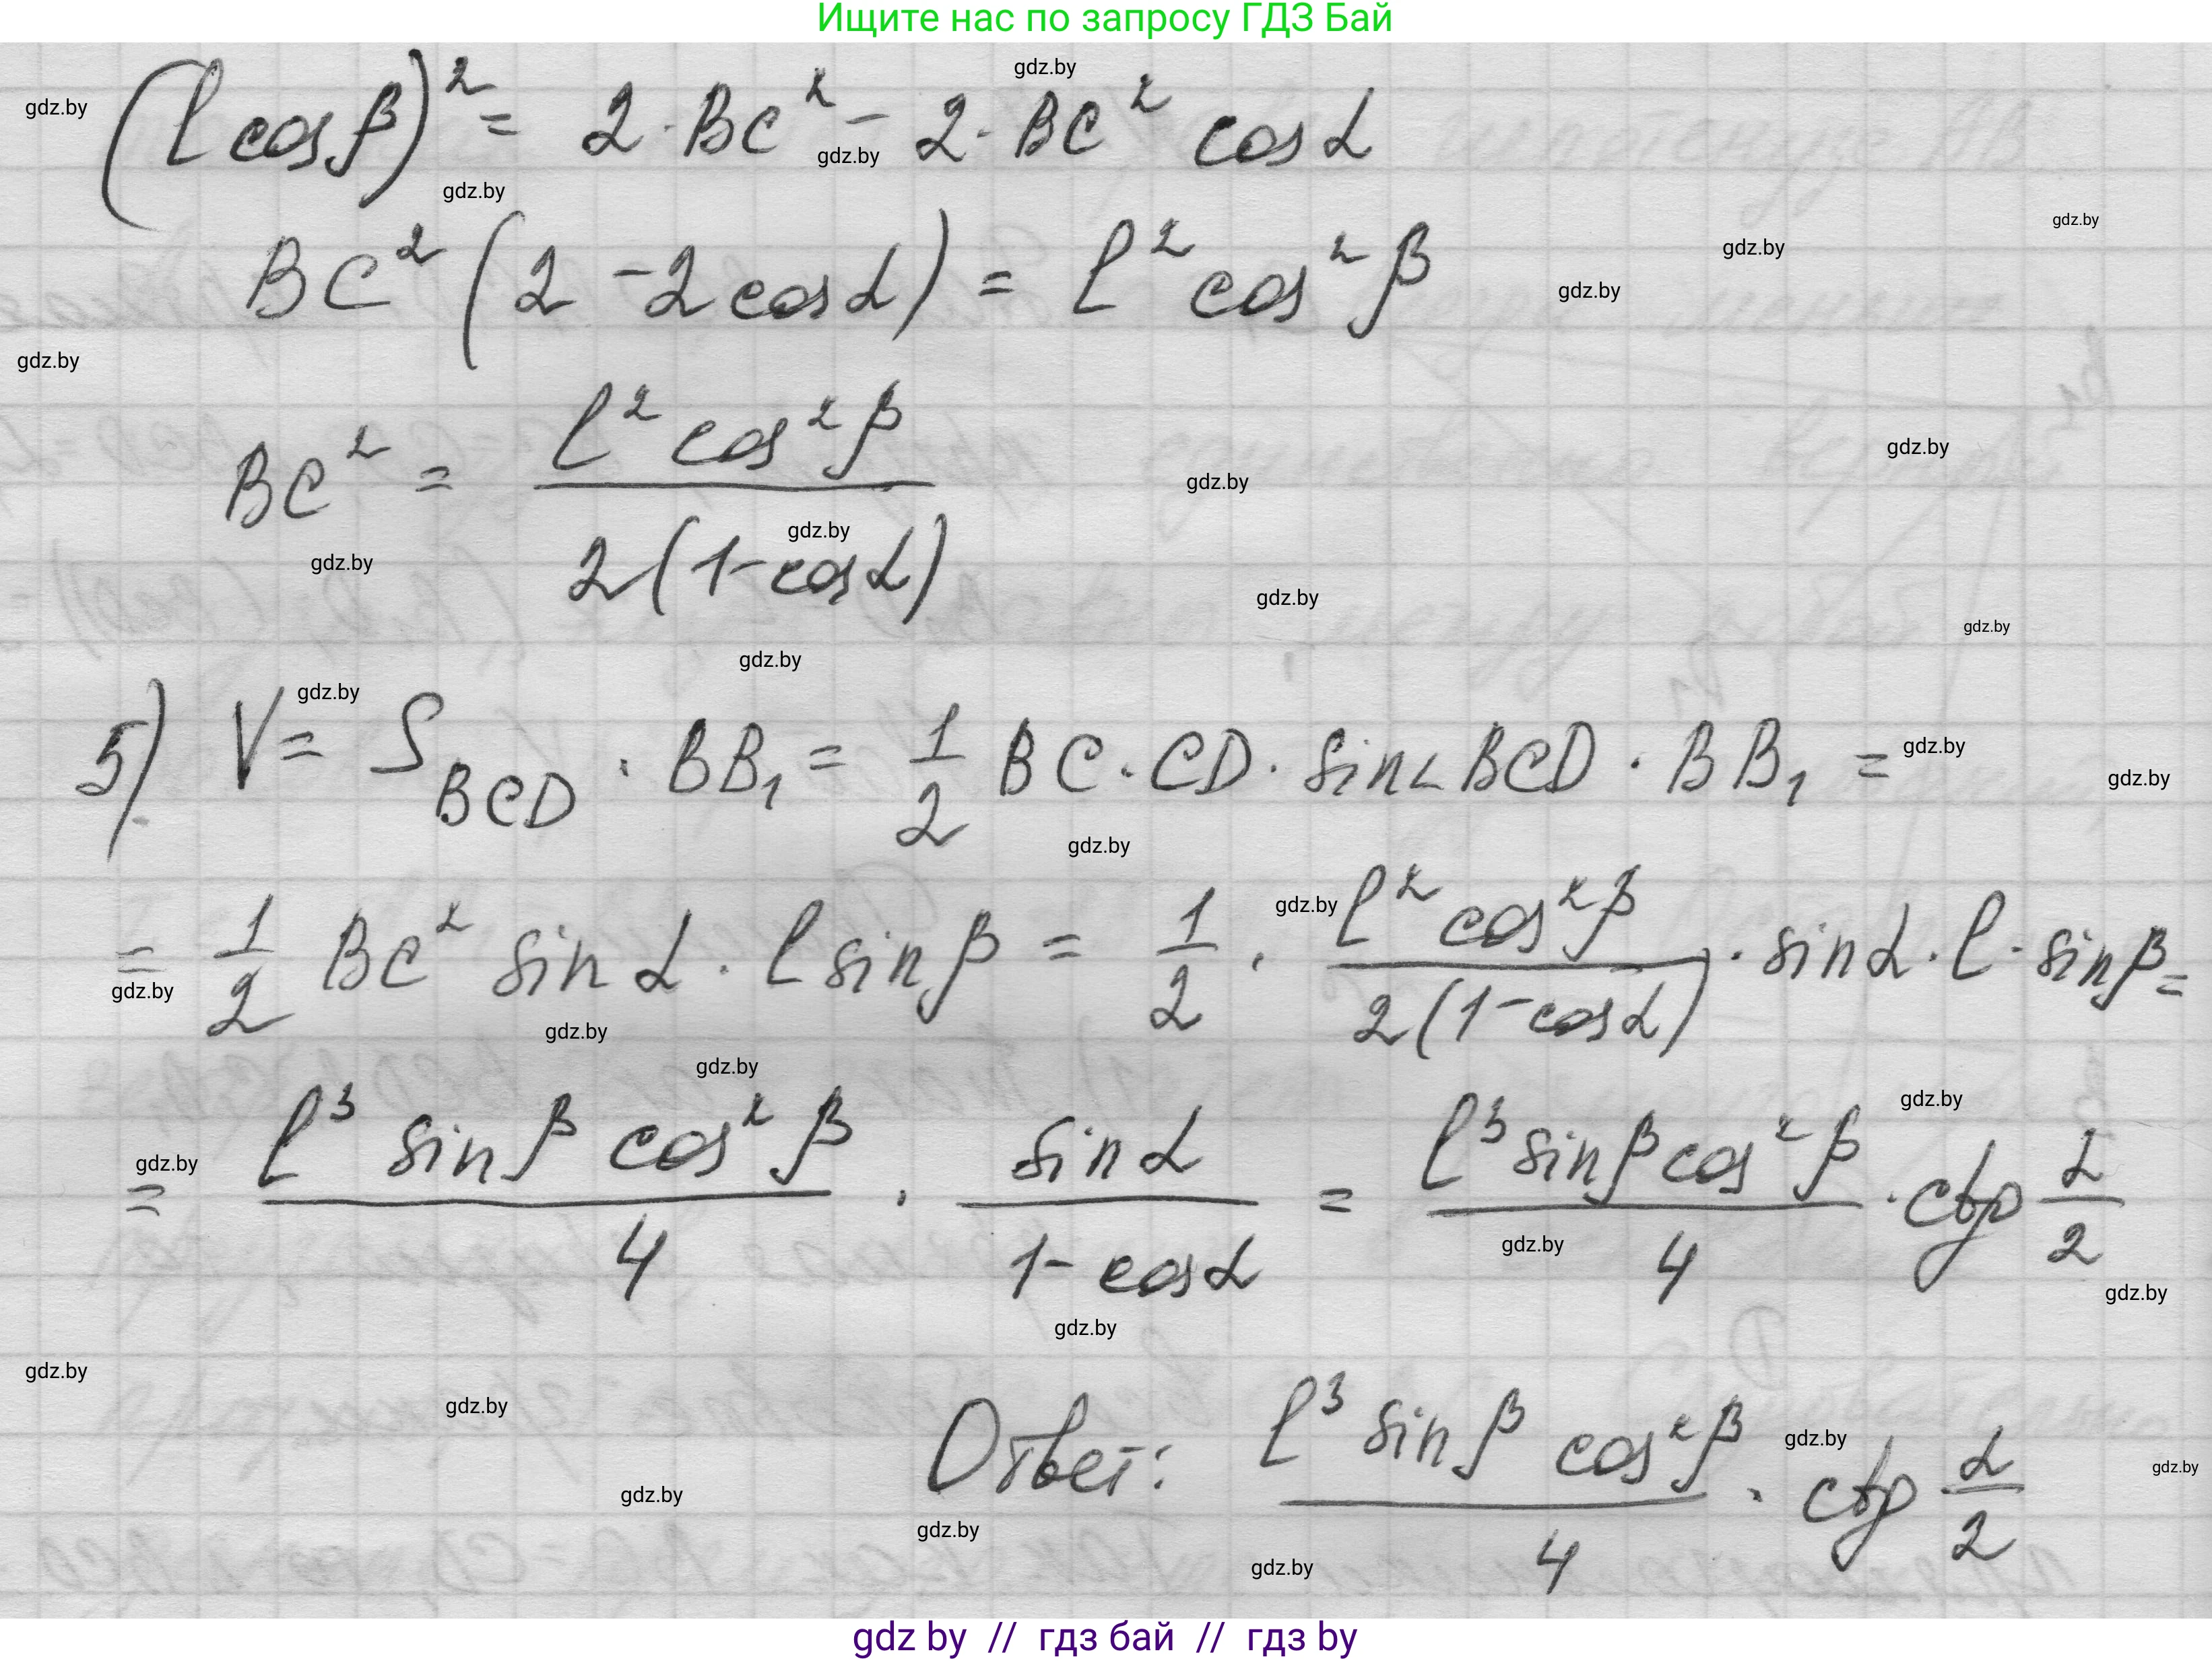 Ищите нас по запросу ГДЗ Бай
(l cos β)² = 2 · BC² − 2 · BC² cos α
BC² (2 − 2 cos α) = l² cos² β
BC² = l² cos² β / 2(1 − cos α)
5) V = S_BCD · BB₁ = 1/2 BC · CD · sin ∠ BCD · BB₁ =
= 1/2 BC² sin α · l sin β = 1/2 · l² cos² β / 2(1 − cos α) · sin α · l · sin β =
= l³ sin β cos² β / 4 · sin α / 1 − cos α = l³ sin β cos² β / 4 · ctg α/2
Ответ: l³ sin β cos² β / 4 · ctg α/2
gdz by // гдз бай // гдз by